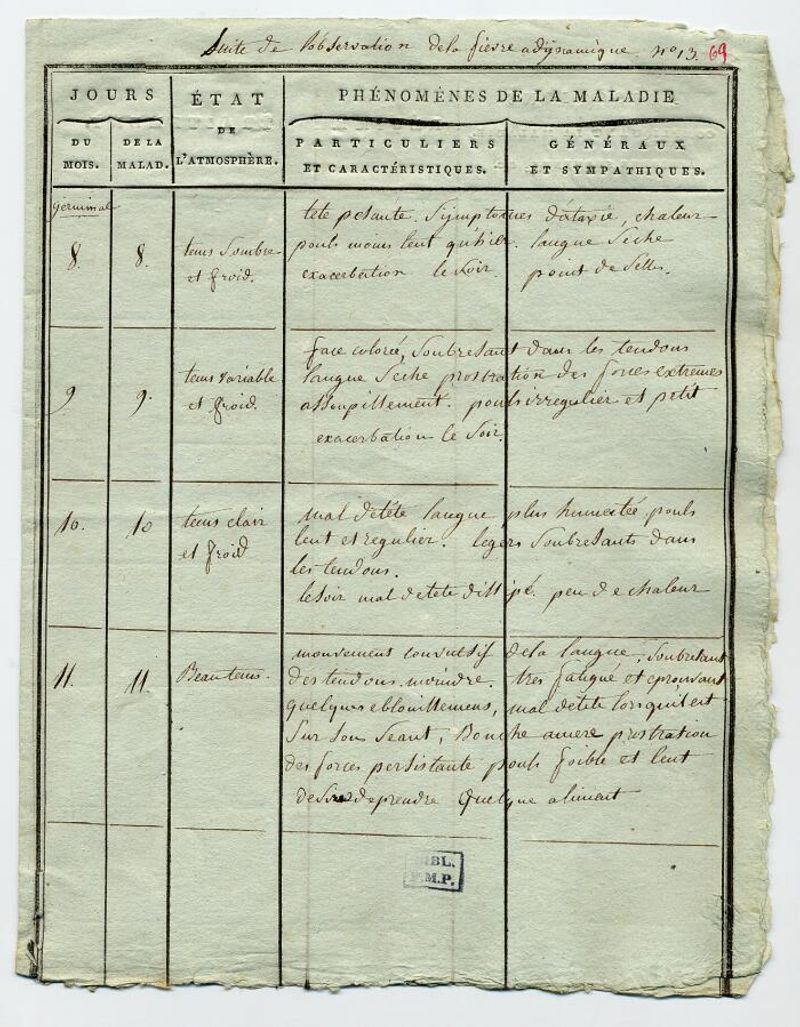 Suite de l'observation de la fievre adÿnamique n° 13. 69
JOURS
ÉTAT
DE
L'ATMOSPHÈRE.
PHÉNOMÈNES DE LA MALADIE
DU
MOIS.
DE LA
MALAD.
PARTICULIERS
ET CARACTÉRISTIQUES.
GÉNÉRAUX
ET SYMPATHIQUES.
germinal
8.
8.
tems sombre
et froid.
tete pesante. Sÿmptomes d'ataxie, chaleur
pouls moins lent qu'hier. langue seche
exacerbation le soir. point de selles.
9
9.
tems variable
et froid.
face colorée, soubresaut dans les tendons
langue seche prostration des forces extremes
assoupissement. pouls irregulier et petit
exacerbation le soir.
10.
10
tems clair
et froid
mal de téte langue plus humectée, pouls
lent et regulier. legers soubresauts dans
les tendons.
le soir mal de tete dissipé. peu de chaleur
11.
11.
Beau tems.
mouvement convulsif de la langue, soubresaut
des tendons moindre. tres fatigué et eprouvant
quelques eblouissemens, mal de téte lorsqu'il est
sur son seant, Bouche amere prostration
des forces persistante pouls foible et lent
desir de prendre quelque aliment
BIBL.
F.M.P.